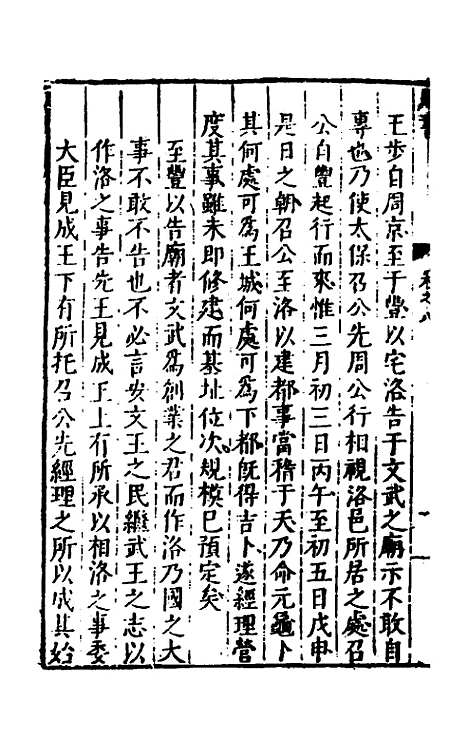 王步自周京至于豐以宅洛告于文武之廟示不敢自
專也乃使太保召公先周公行相視洛邑所居之處召
公自豐起行而來惟三月初三日丙午至初五日戊申
是日之朝召公至洛以建都事當稽于天乃命元龜卜
其何處可爲王城何處可爲下都旣得吉卜遂經理營
度其事雖未卽修建而基址位次規模已預定矣
至豐以告廟者文武爲創業之君而作洛乃國之大
事不敢不告也不必言安文王之民繼武王之志以
作洛之事告先王見成王上有所承以相洛之事委
大臣見成王下有所托召公先經理之所以成其始
卷之八